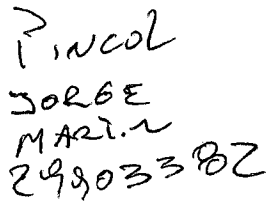 PINCOL
JORGE
MARTIN
29903382